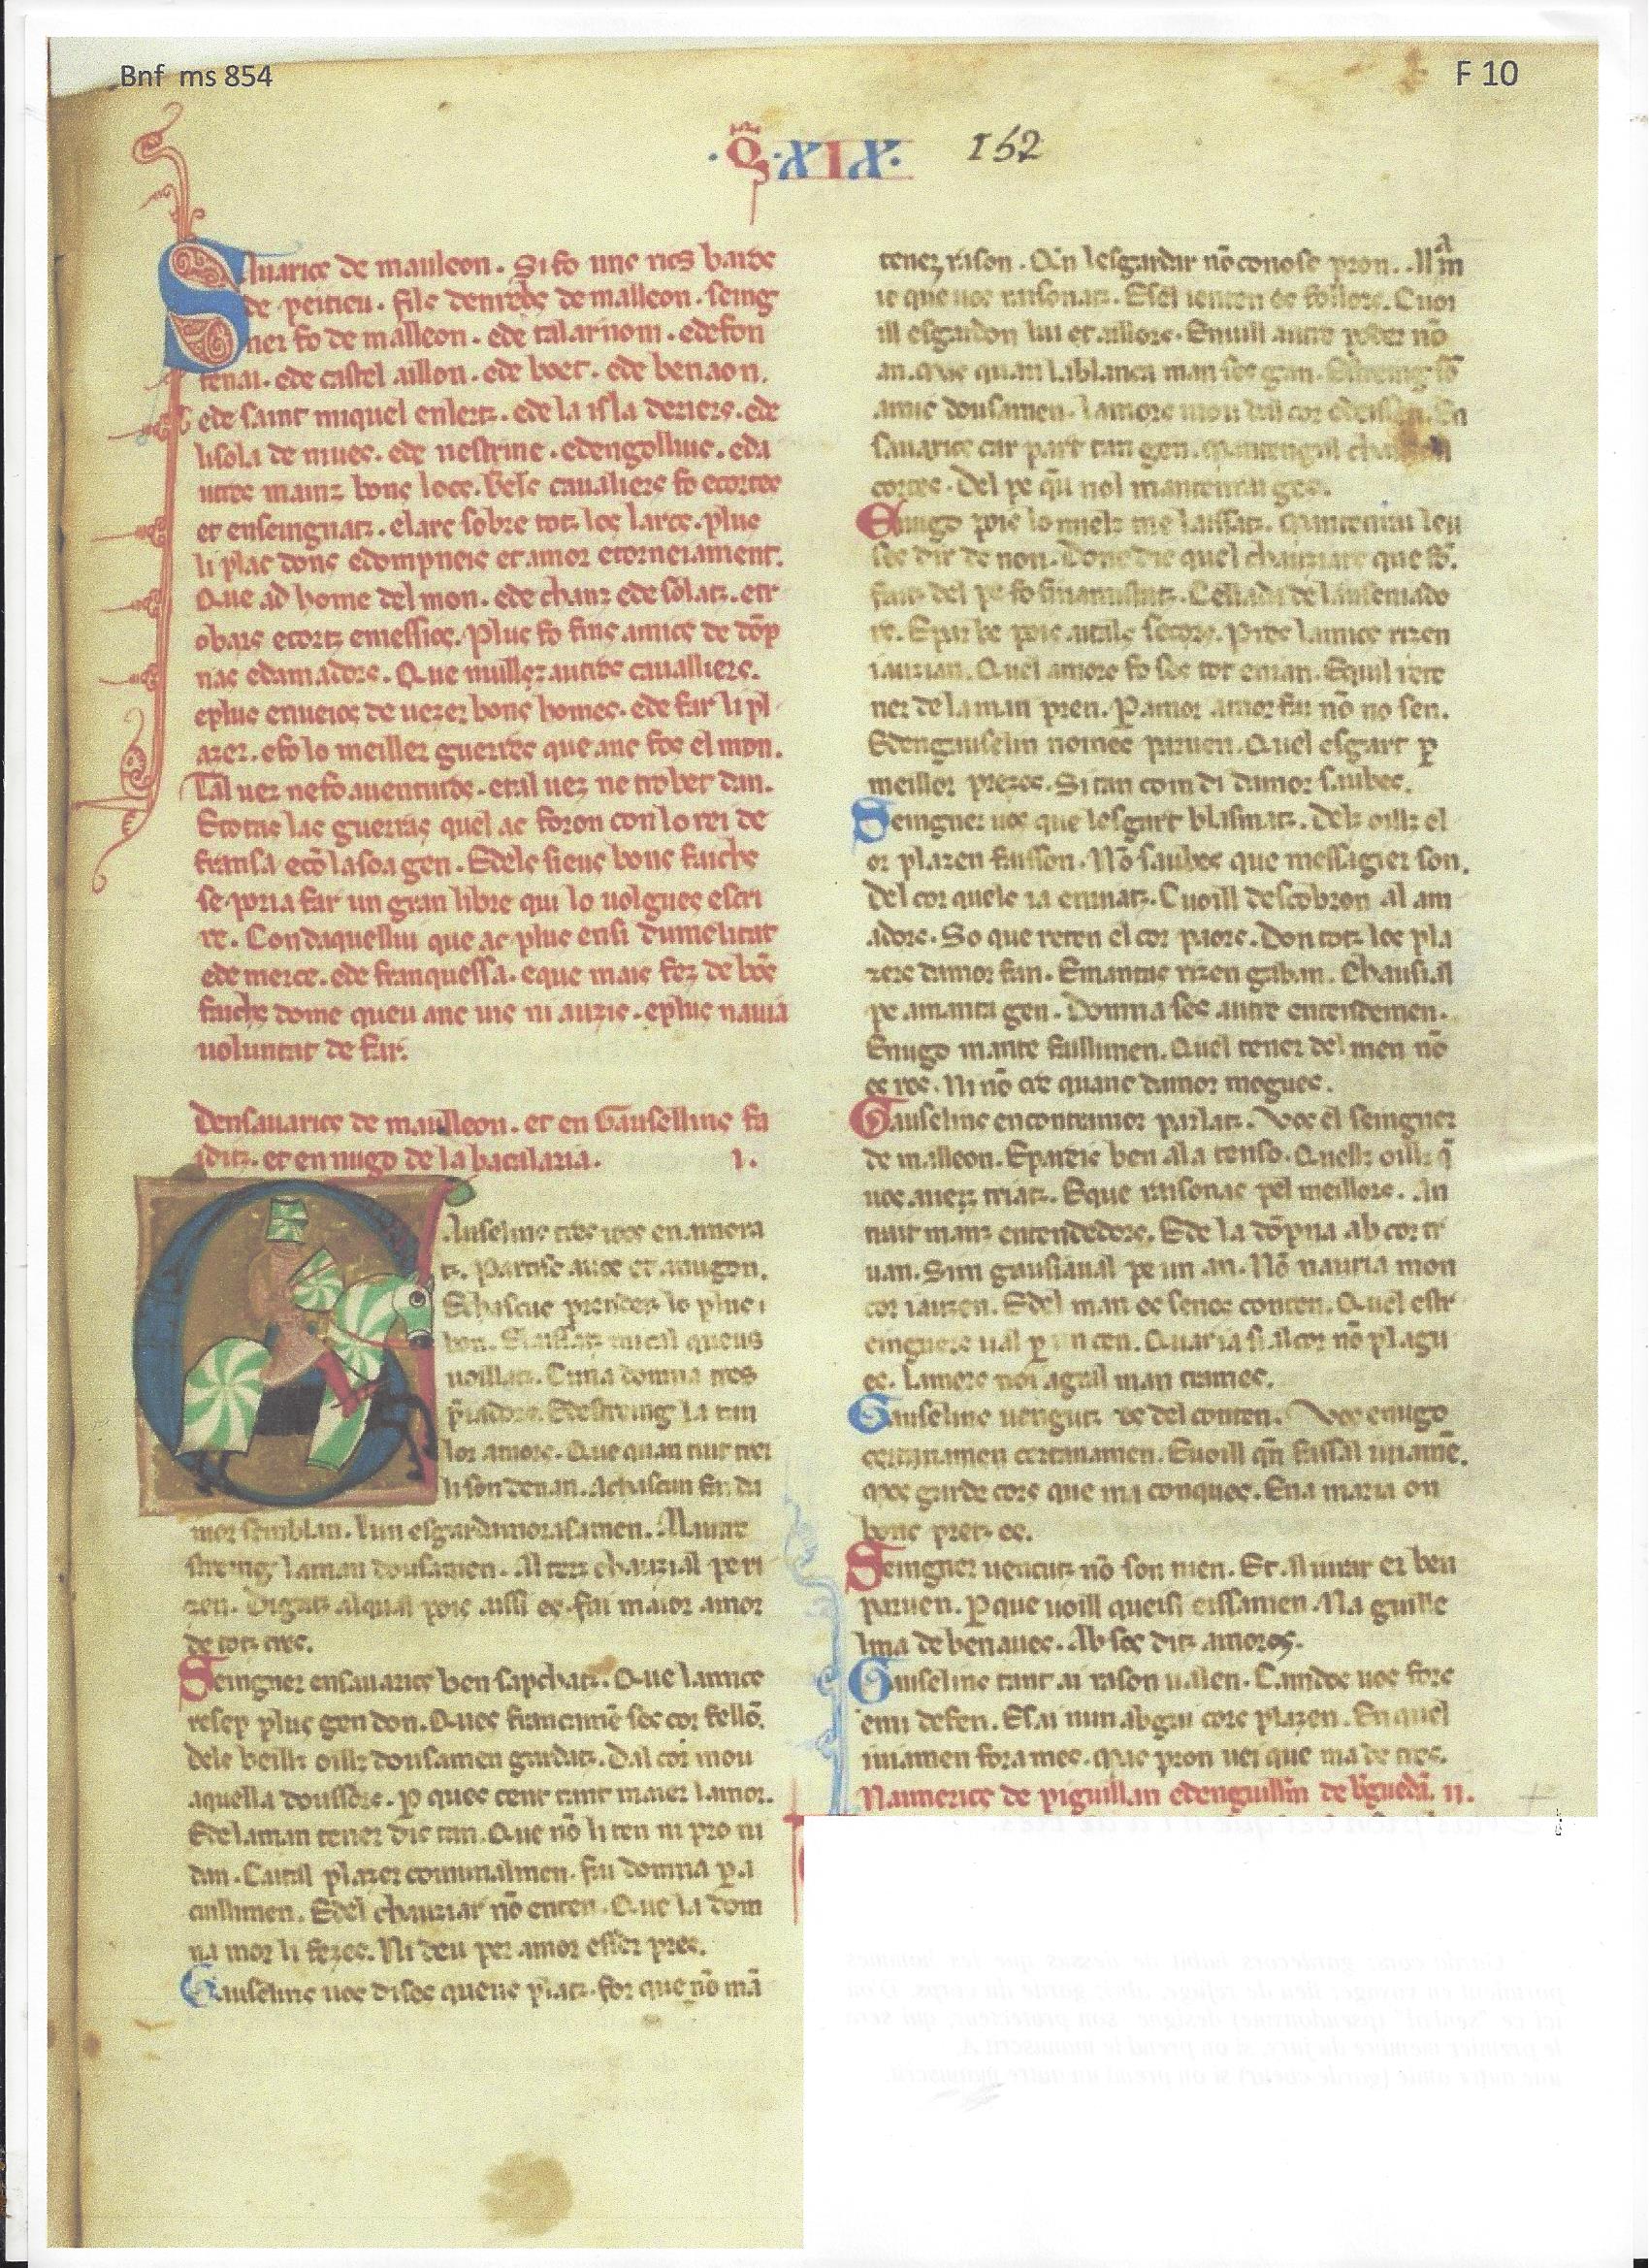 Bnf ms 854
F 10
·Q̃·XIX· 152
SAuarics de mauleon. Si fo uns rics bar̄s
de peitieu. fils den reb̄s de malleon. seing
ner fo de malleon. ede talarnom. ede fon
tenai. ede castel aillon. ede boet. ede benaon.
ede saint miquel enlertz. ede la isla deriers. ede
lisola de nues. ede nestrine. edengollius. eda
utres mainz bons locs. Bels caualiers fo ecortes
et enseingnatz. elarcs sobre totz los larcs. plus
li plac dons edompneis et amor etorneiament.
Que ad home del mon. ede chanz ede solatz. etr
obars ecortz emessios. Plus fo fins amics de dōp
nas edamadors. Que nuillez autres caualliers.
eplus enueios de uezer bons homes. ede far li pl
azer. efo lo meiller guerrers que anc fos el mon.
Tal uez ne fo auenturos. etal uez ne trobet dan.
Etotas las guerras quel ac foron con lo rei de
fransa. ecō la soa gen. Edels sieus bons faichs
se poria far un gran libre qui lo uolgues escri
re. Con daquelliu que ac plus ensi dumelitat
ede merce. ede franquessa. eque mais fez de bōs
faichs dome queu anc uis ni auzis. eplus nauia
uoluntat de far.
Densauarics de maulleon. et en Gausellins fa
iditz. et en nugo de la bacalaria. I.
GAuselins tres iocs enamora
tz. Partisc auos et anugon.
Echascus prendetz lo plus
bon. Elaissatz mi cal queus
uoillatz. Cuna domna tres
p̄iadors. Edestreing la tan
lor amors. Que quan tuit trei
li son denan. Achascun fai da
mor semblan. Lun esgardamorosamen. Alautre
streing laman dousamen. Al terz chauzial pe ri
zen. Digatz alqual pois aissi es. fai maior amor
de totz tres.
Seingner ensauarics ben sapchatz. Que lamics
resep plus gen don. Ques francamē ses cor fellō.
dels beills oills dousamen gardatz. Dal cor mou
aquella doussors. p̱ ques cent tant maier lamor.
Edelaman tener dic tan. Que nō li ten ni pro ni
dan. Caital plazer comunalmen. fai domna p̱ a
cuillimen. Edel chauzar nō enten. Que la dom
na mor li fezes. Ni deu per amor esser pres.
Gauselins uos disos queus platz. for que nō mā
tenez rason. Qen lesgardar nō conosc pron. All am
ic que uos rasonatz. Esel ienten es follors. Cuoi
ill esgardon lui et aillors. Enuill autre poder nō
an. Mas quan lablanca man ses gan. Estreing sō
amic dousamen. Lamors mou dal cor edelsen. En
sauarics car part tan gen. Mantengal
cortes. Del pe q̄u nol mantenrai ges.
Enugo pois lo miels me laissatz. Mantenrai leu
ses dir de non. Donc dic quel chauzars que fo.
faitz del pe fo
re. Epar be pois aitals secors. Pres lamics rizen
iauzian. Quel amors fo ses tot enian. Equil te
ner de la man pren. P̱ amor amor fai nō no sen.
Edengauselin nomes paruen. Quel esgart p̱
meillor prezes. Si tan com di damor saubes.
Seingner uos que lesgart blasmatz. Dels oills el
or plazen faisson. Nō saubes que messagier son.
Del cor quels ia enuiatz. Cuoill descobron al am
adors. So que reten el cor paors. Don totz los pla
zers damor fan. Emantas rizen gaban. Chausi al
pe amanta gen. Domna ses autre entendemen.
Enugo mante faillimen. Quel tener del men nō
es res. Ni nō cre quanc damor mogues.
Gauselins encontramor parlatz. Vos el seingner
de malleon. Epareis ben ala tenso. Quells oills q̄
uos auetz triatz. Eque rasonas pel meillors. An
trait manz entendedors. Ede la dōpna ab cor tr
uan. Sim grausiaual pe un an. Nō nauria mon
cor iauzen. Edel man es senes conten. Quel estr
eingners ual p̱ un cen. Quar ia si al cor nō plagu
es. Lamors noi agral man trames.
Gauselins uengutz es del conten. Vos enugo
certanamen certanamen. Euoill q̄n fassal iuiamē.
Mos garda cors que ma conques. Ena maria on
bons pretz es.
Seingner uencutz nō son nien. Et al iutar er ben
paruen. P̱ que uoill queisi eissamen. Na guille
lma de benaues. Ab sos ditz amoros.
Gauselins tant ai rason ualen. Camdos uos fors
emi defen. Esai nun abgai cors plazen. En quel
iuiamen fora mes. Mas pron uei que ma de tres.
Naimerics de piguillan edenguillm̄ de b̄guedā. II.